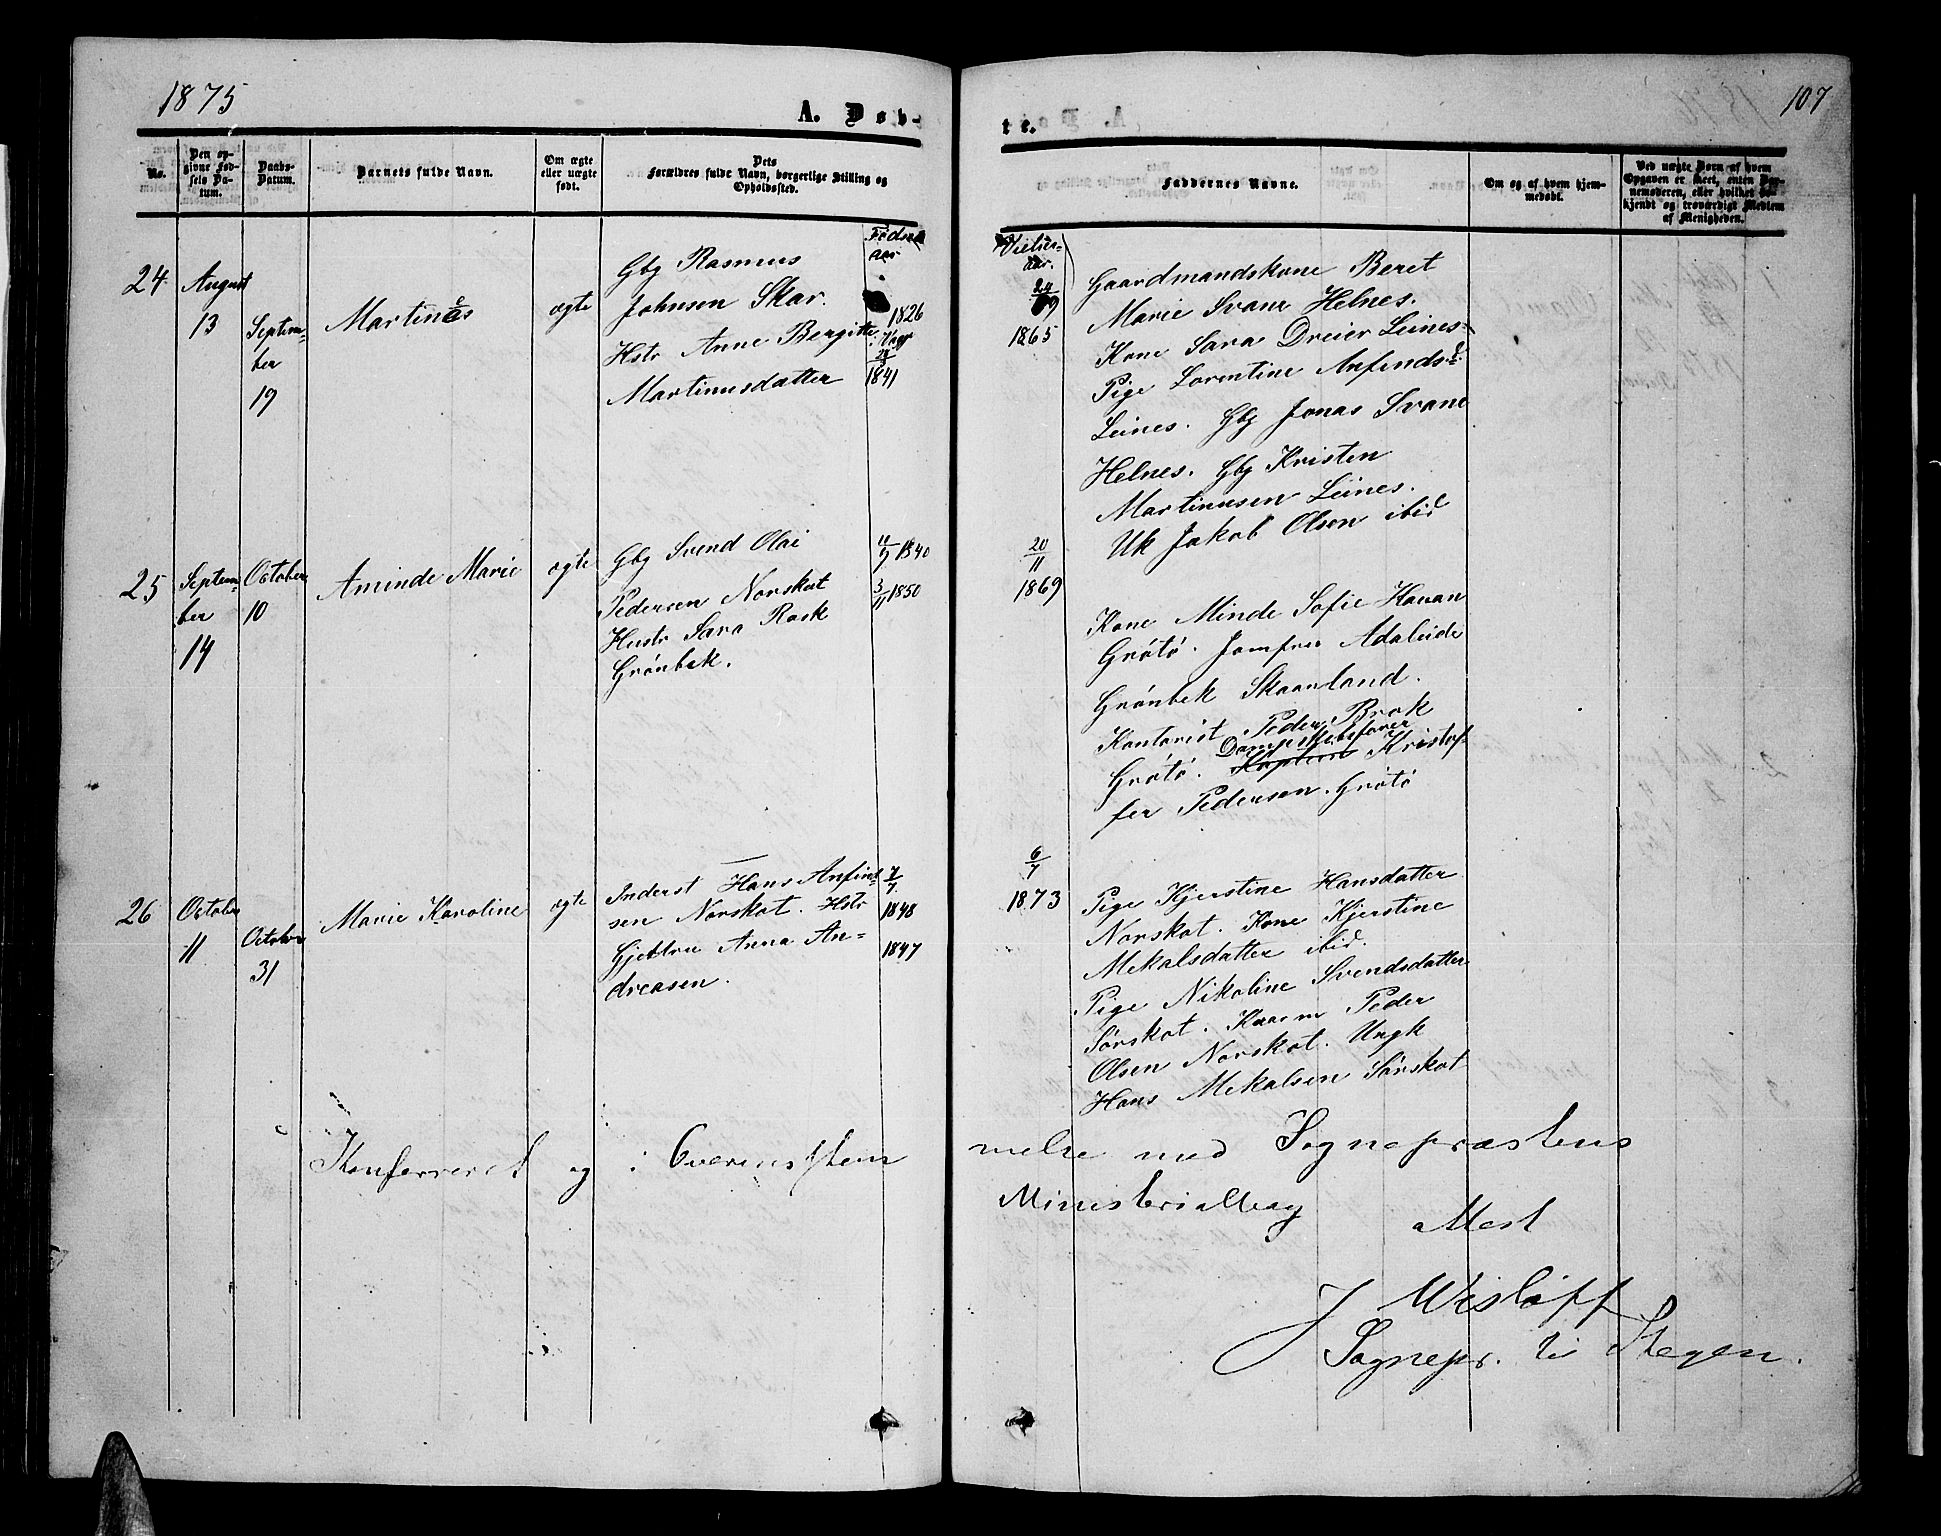 1875
107
A. Døb-
te.
No.
Den op-
givne Fød-
sels Da-
tum.
Daabs-
Datum.
Barnets fulde Navn.
Om ægte
eller uægte
født.
Dets
Forældres fulde Navn, borgerlige Stilling og
Opholdssted.
Faddernes Navne.
Om og af hvem hjem-
medøbt.
Ved uægte Børn af hvem
Opgaven er skeet, enten Bar-
nemoderen, eller hvilket be-
kjendt og troværdigt Medlem
af Menigheden.
Fødsels
aar
Vielses-
aar.
24
August
13
Septem-
ber
19
Martinæs
ægte
Gbg Rasmus
Johnsen Skar.
Hstr Anne Bergitte
Martinusdatter
1826
1841
24
9
1865
Gaardmandskone Beret
Marie Svane Helnes.
Kone Sara Dreier Leines
Pige Lorentine Anfindsd.
Leines. Gbg Jonas Svane
Helnes. Gbg Kristen
Martinusen Leines.
Uk Jakob Olsen ibid
25
Septem-
ber
14
October
10
Aminde Marie
ægte
Gbg Svend Olai
Pedersen Norskot
Hustr Sara Rask
Grönbek.
11/9 1840
3/11 1850
20
11
1869
Kone Minde Sofie Havan
Grötö. Jomfru Adaleide
Grönbek Skaanland.
Kontorist Peder Brok
Dampskibsfører
Grötö. Kaptein Kristof-
fer Pedersen. Grötö
26
October
11
October
31
Marie Karoline
ægte
Inderst Hans Anfind-
sen Norskot. Hstr
Gjertru Anna An-
dreasen.
7/7
1848
1847
6
7
1873
Pige Kjerstine Hansdatter
Norskot. Kone Kjerstine
Mekalsdatter ibid.
Pige Nikoline Svendsdatter
Sörskot. Kaarm Peder
Olsen Norskot. Ungk
Hans Mekalsen Sörskot
Konfereret og i Overensstem
melse med Sognepræstens
Ministerialbog
Attest
J Wisløff
Sognepr. til Stegen.